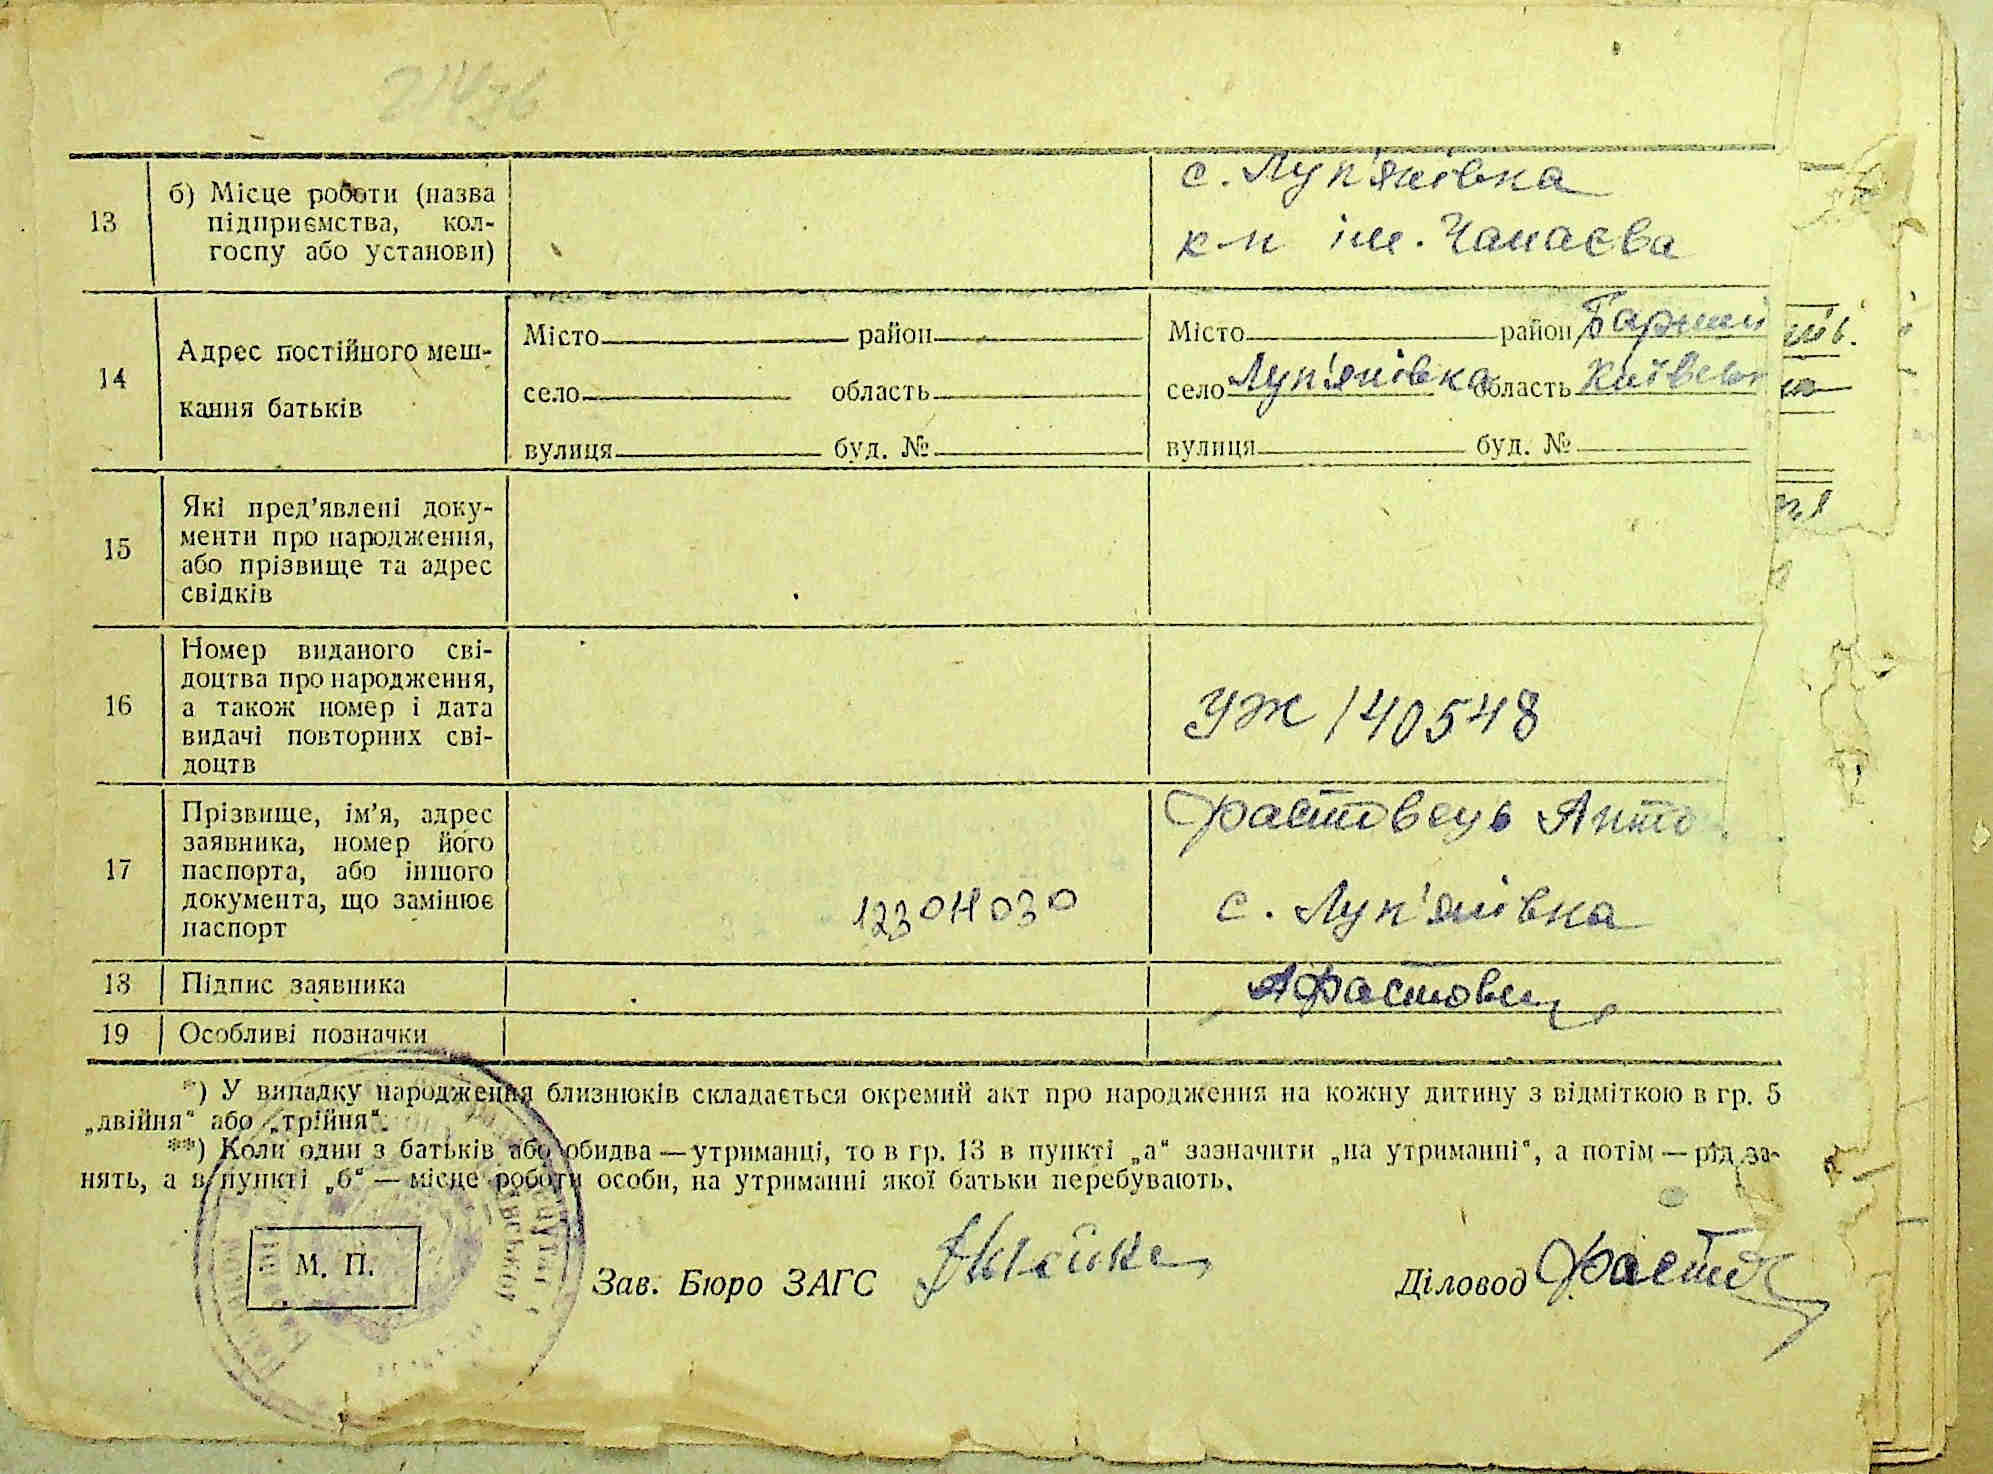 13
б) Місце роботи (назва
підприємства, кол-
госпу або установи)
с. Луп'янівка
к-п ім. Чапаєва
14
Адрес постійного меш-
кання батьків
Місто район
село область
вулиця буд. №
Місто район
село Луп'янівка область
вулиця буд. №
15
Які пред'явлені доку-
менти про народження,
або прізвище та адрес
свідків
16
Номер виданого сві-
доцтва про народження,
а також номер і дата
видачі повторних сві-
доцтв
УЖ 140548
17
Прізвище, ім'я, адрес
заявника, номер його
паспорта, або іншого
документа, що замінює
паспорт
Фастовець
с. Луп'янівка
18
Підпис заявника
АФастовец
19
Особливі позначки
*) У випадку народження близнюків складається окремий акт про народження на кожну дитину з відміткою в гр. 5
„двійня" або „трійня".
**) Коли один з батьків або обидва—утриманці, то в гр. 13 в пункті „а" зазначити „на утриманні", а потім — рід за-
нять, а в пункті „б" — місце роботи особи, на утриманні якої батьки перебувають.
М. П.
Зав. Бюро ЗАГС
Діловод